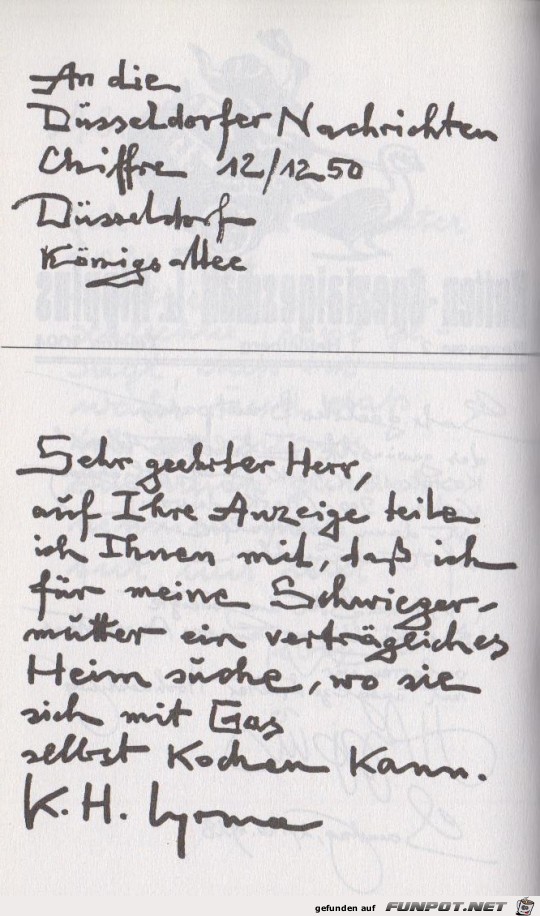 An die
Düsseldorfer Nachrichten
Chiffre 12/1250
Düsseldorf
Königsallee
Sehr geehrter Herr,
auf Ihre Anzeige teile
ich Ihnen mit, daß ich
für meine Schwieger-
mutter ein verträgliches
Heim suche, wo sie
sich mit Gas
selbst kochen kann.
K. H.
gefunden auf FUNPOT.NET